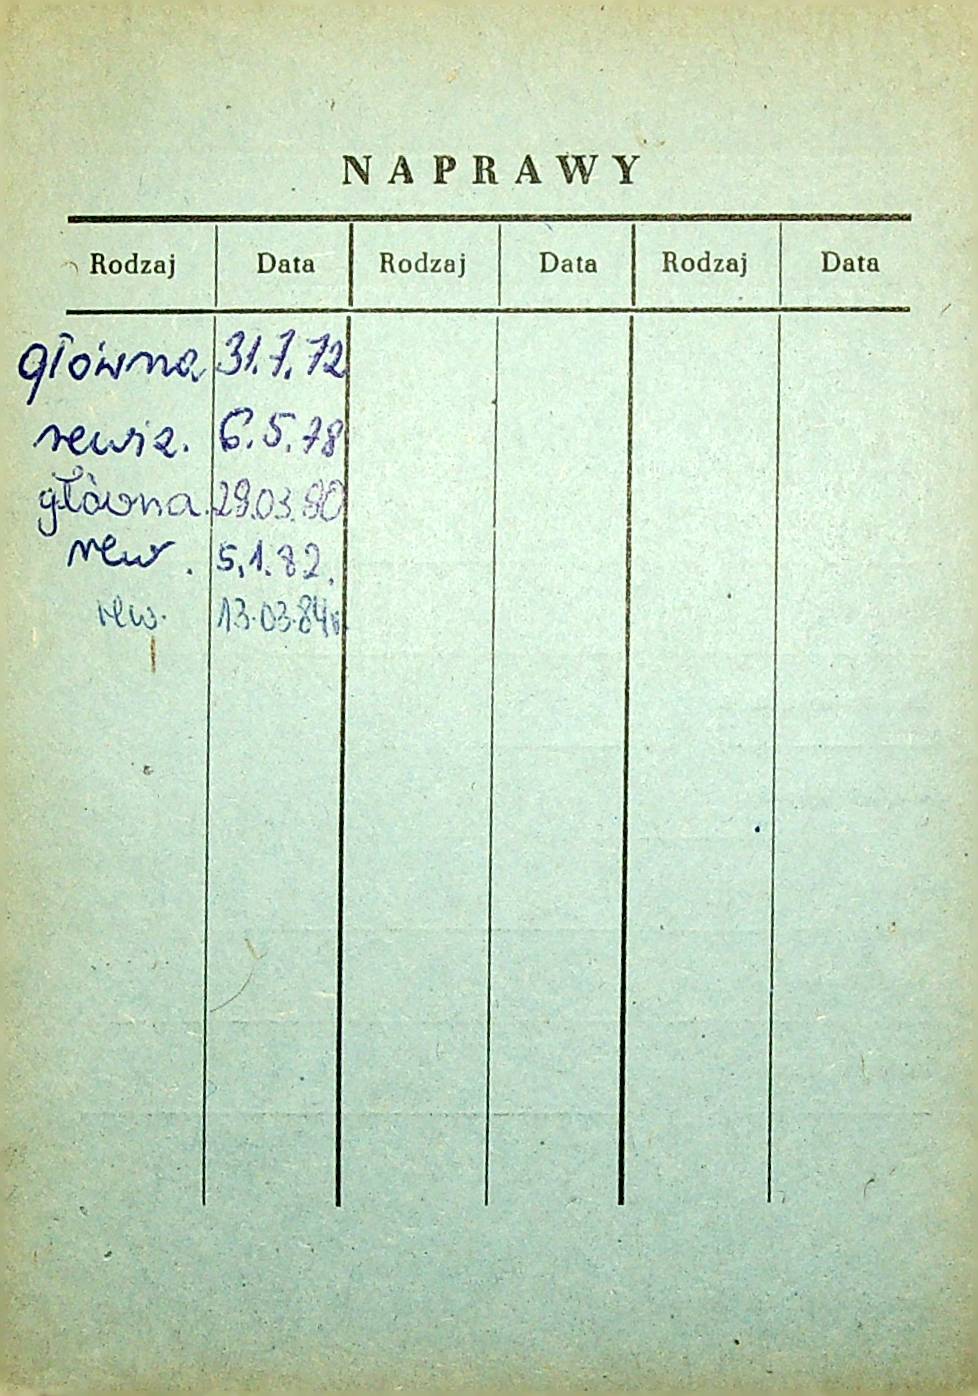 NAPRAWY
Rodzaj Data Rodzaj Data Rodzaj Data
główna 31.7.72
rewiz. 6.5.78
główna. 29.03.80
rew. 5.1.82.
rew. 13.03.84r.